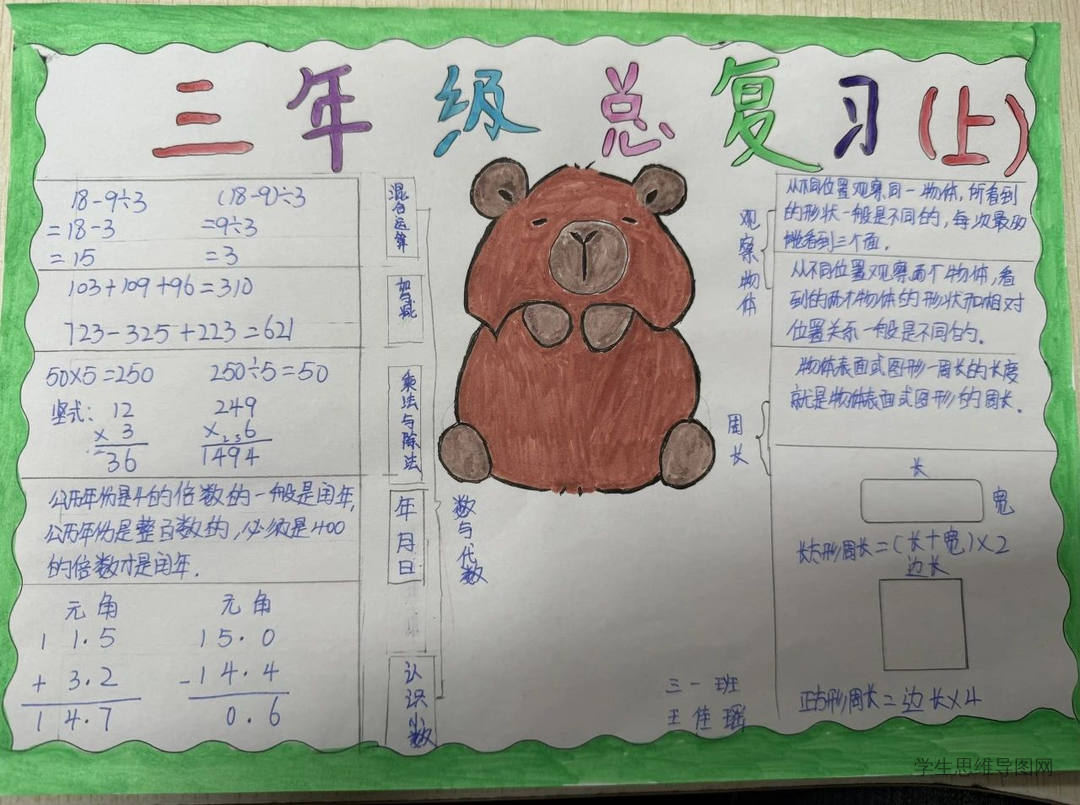 三年级总复习(上)
18-9÷3 (18-9)÷3
=18-3 =9÷3
=15 =3
103+109+96=310
723-325+223=621
50×5=250 250÷5=50
竖式: 12 249
× 3 × 6
36 1494
公历年份是4的倍数的一般是闰年,
公历年份是整百数的,必须是400
的倍数才是闰年.
元角 元角
11.5 15.0
+3.2 -14.4
14.7 0.6
混合运算
加与减
乘法与除法
年月日
认识小数
数与代数
观察物体
从不同位置观察同一物体,所看到
的形状一般是不同的,每次最多
能看到三个面.
从不同位置观察两个物体,看
到的两个物体的形状和相对
位置关系一般是不同的.
周长
物体表面或图形一周长的长度
就是物体表面或图形的周长.
长
宽
长方形周长=(长+宽)×2
边长
正方形周长=边长×4
三一班
王佳瑶
学生思维导图网